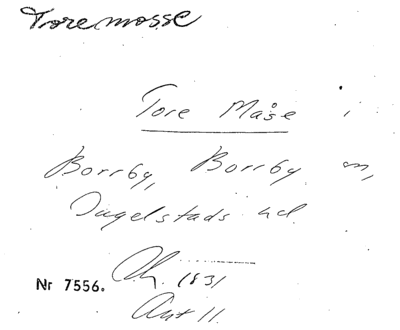 Toremosse
Tore Måse i
Borrby, Borrby sn,
Ingelstads hd
Nr 7556. 1831
Akt 11